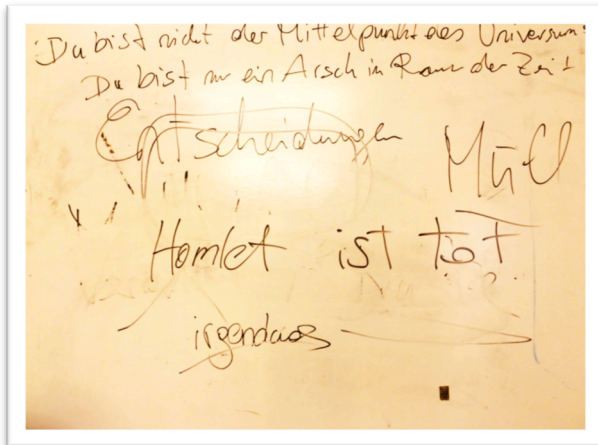 Du bist nicht der Mittelpunkt des Universum
Du bist nur ein Arsch in Raum der Zeit
Entscheidungen
Müll
Hamlet ist tot
irgendwas